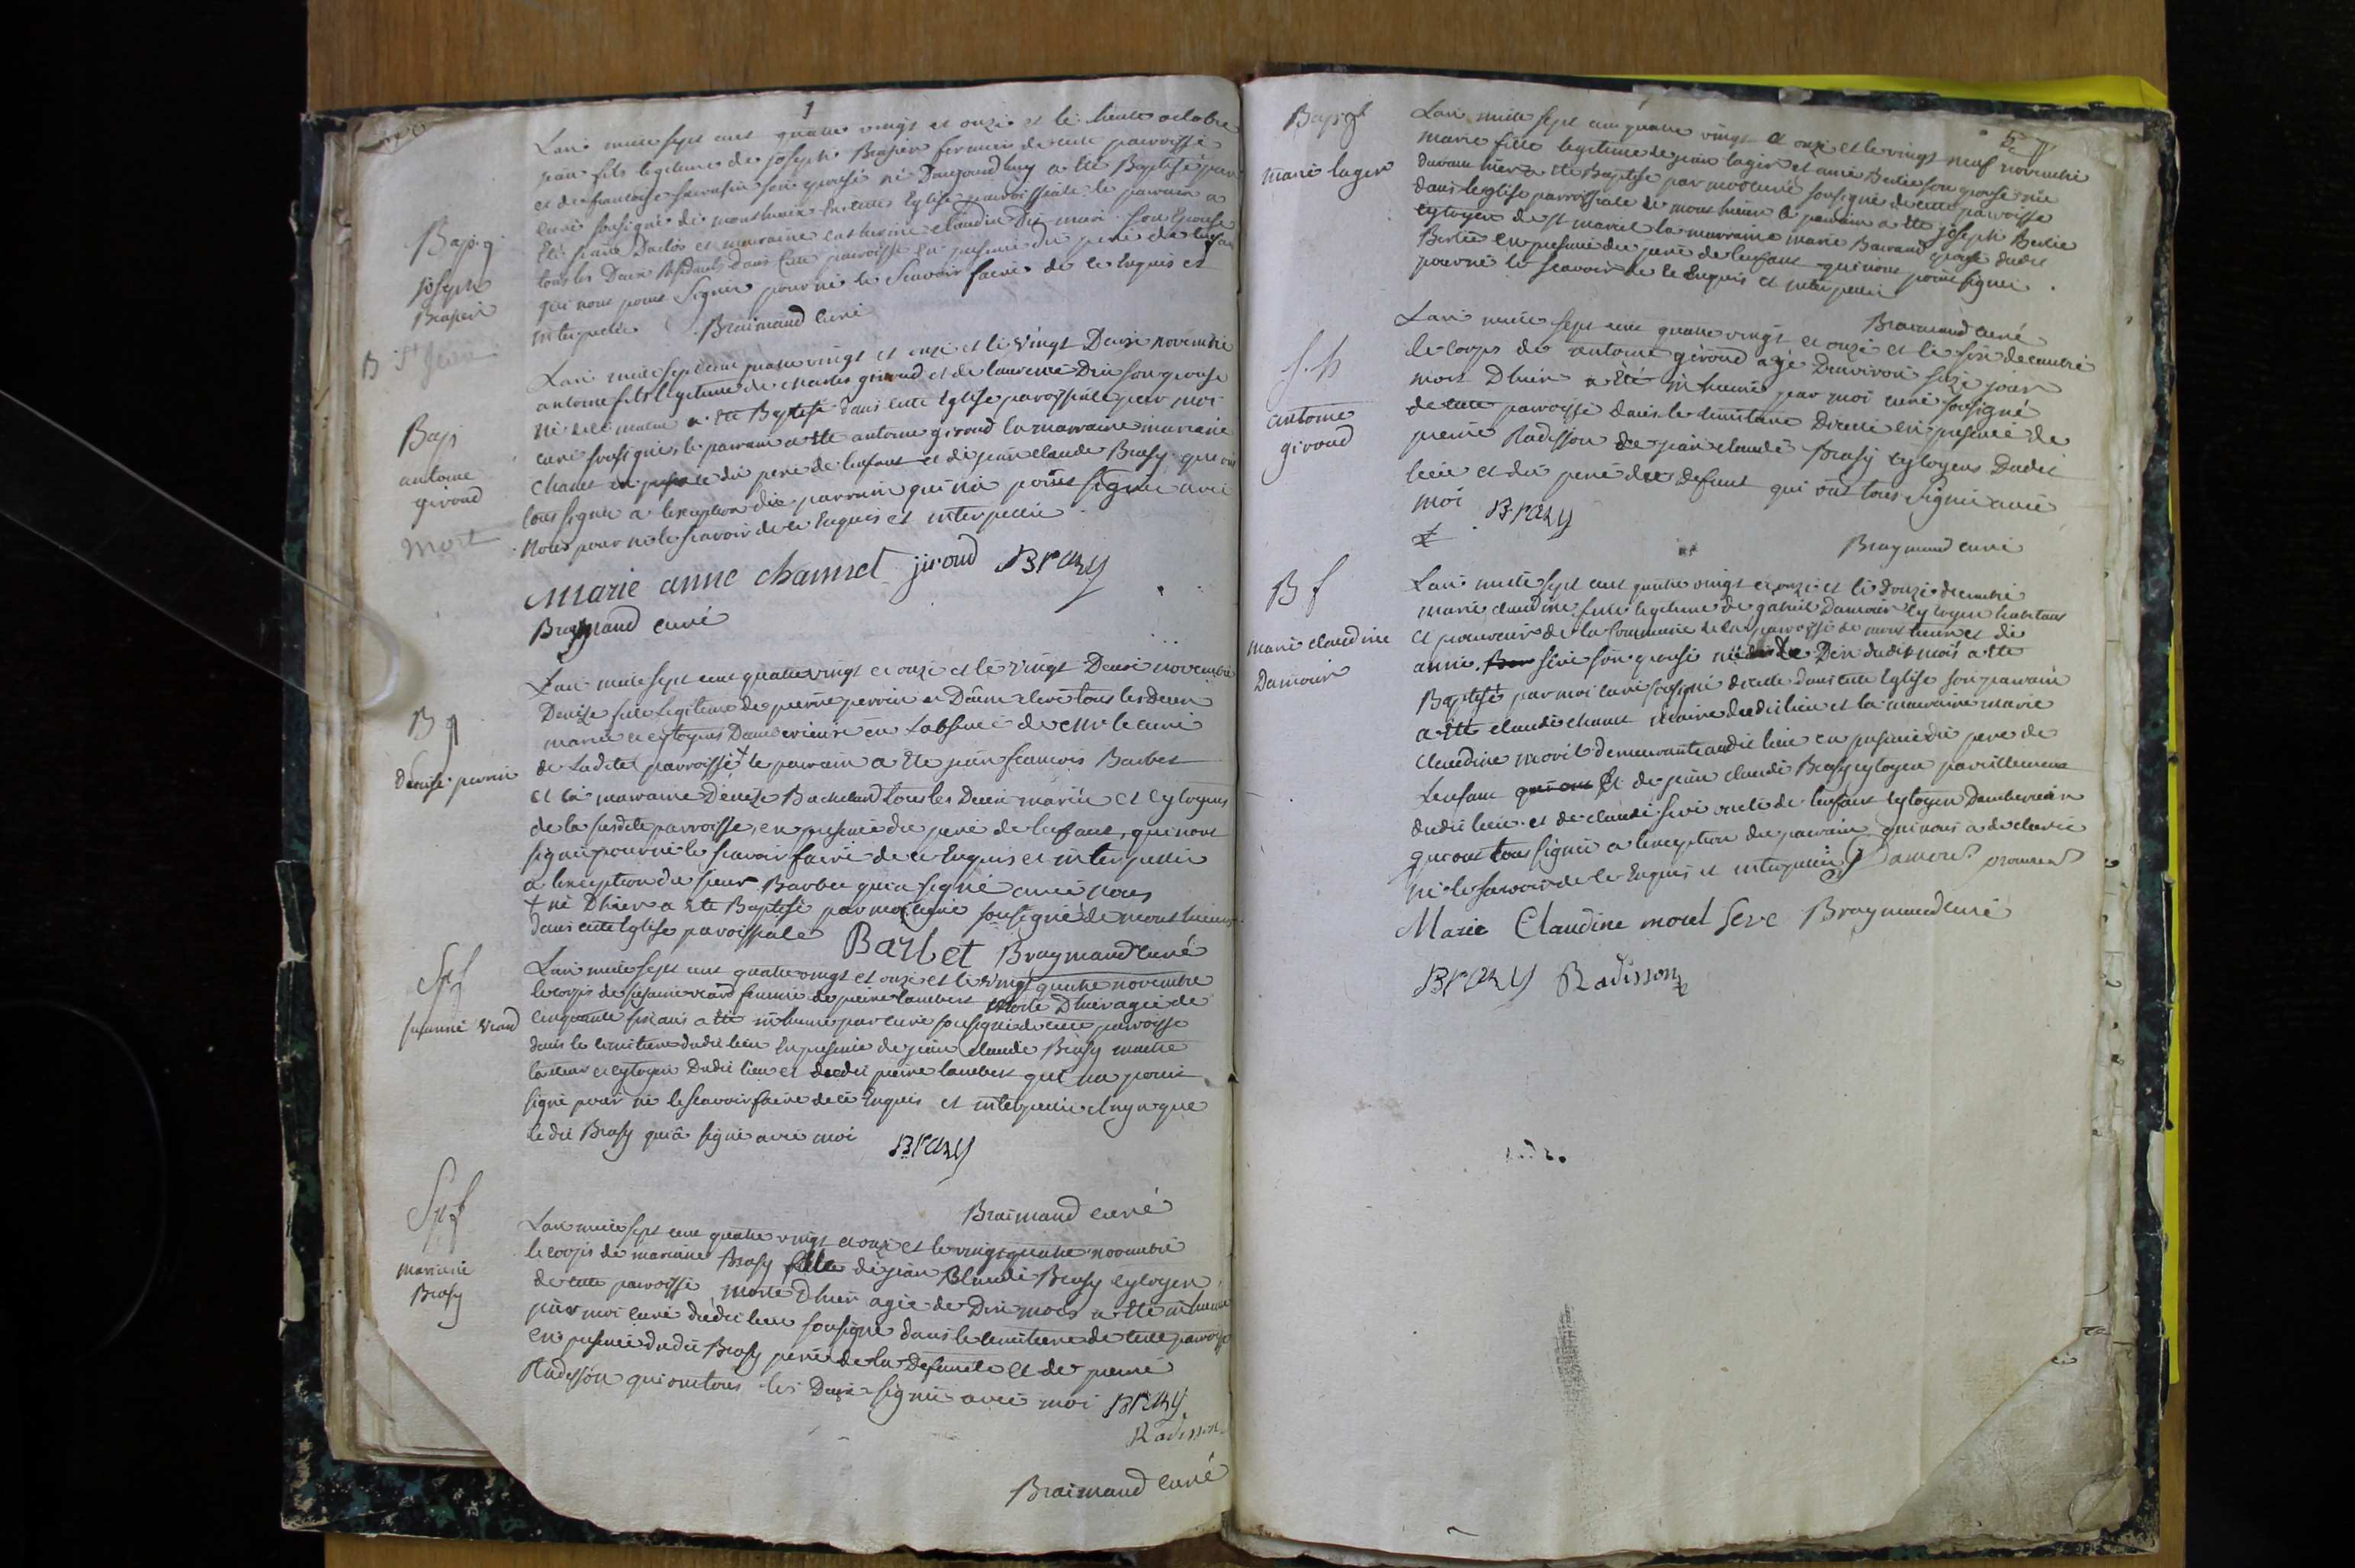 1
Lan mille sept cent quatre vingt et onze et le trente octobre
jean fils legitime de joseph Brasier fermier de cette parroisse
et de francoise son epouse né daujourdhuy a été Baptisé par
curé sousigné de monthieux en cette Eglise parroissiale le parrain a
été jean et marraine catherine claudine son Epouse
tous les Deux Residants dans cette parroisse En presence du pere de lenfant
qui nont point Signés pour ne le Scavoir faire de ce Enquis et
interpellés Braimand curé
Bap. g.
joseph
Brasier
B St Jean
Lan mille sept cent quatre vingt et onze et le vingt Deux novembre
antoine fils legitime de charles giroud et de laurence Din son epouse
né de ce matin a été Baptisé dans cette Eglise parroissiale par moi
curé sousigné, le parrain a été antoine giroud la marraine mariane
chanet en presence du pere de lenfant et de jean claude Brasy qui ont
tous signés a lexception du parrain qui na point signé avec
Nous pour ne le scavoir de ce Enquis et interpellé
Bap
antoine
giroud
mort
Marie anne channet jiroud BRAZY
Braymand curé
Lan mille sept cent quatre vingt et onze et le vingt Deux novembre
Denize fille legitime de pierre perrin et tous les deux
mariés et cytoyens Damberieux en Labsence de Mr le curé
de Ladite parroisse + le parrain a été jean francois Barbet
et la marraine Denize Bachelard tous les Deux mariés et cytoyens
de la susdite parroisse, en presence du pere de lenfant, qui nont
signé pour ne le scavoir faire de ce Enquis et interpellés
a lexception du sieur Barbet qui a signé avec nous
+ né Dhier a été Baptisé par moi curé sousigné de monthieux
dans cette Eglise paroissiale Barbet Braymand curé
B f
denise perrin
Lan mille sept cent quatre vingt et onze et le vingt quatre novembre
le corps de susanne viard femme de pierre lambert morte Dhier agée de
cinquante six ans a été inhumé par curé sousigné de cette parroisse
dans le cimitiere dudit lieu En presence de jean claude Brasy maitre
et cytoyen Dudit lieu et dudit pierre lambert qui na point
signé pour ne le scavoir faire de ce Enquis et interpellé ny que
le dit Brasy qui a signé avec moi BRAZY
Sp f
susanne viard
Braimand curé
Lan mille sept cent quatre vingt et onze et le vingt quatre novembre
le corps de mariane Brasy fille de jean Claude Brasy cytoyen
de cette parroisse, morte Dhier agée de Dix mois a été inhumé
par moi curé dudit lieu sousigné dans le cimitiere de cette parroisse
en presence dudit Brasy pere de la defunte et de pierre
Radisson qui ont tous les Deux signé avec moi BRAZY
Radisson
Sp f
mariane
Brasy
Braimand curé
Bap f
marie lager
Lan mille sept cent quatre vingt et onze et le vingt neuf novembre
marie fille legitime de jean lager et anne Berlie son epouse née
davant hier a été Baptisé par moi curé sousigné de cette parroisse
dans leglise parroissiale de monthieux le parrain a été joseph Berlie
cytoyen de st marcel la marraine marie Barraud epouse dudit
Berlie en presence du pere de lenfant qui nont point signés
pour ne le scavoir de ce Enquis et interpellés
Braimand curé
Lan mille sept cent quatre vingt et onze et le six decembre
le corps de antoine giroud agé Denviron seize jour
mort Dhier a été inhumé par moi curé sousigné
de cette parroisse dans le cimitiere Dicelle en presence de
pierre Radisson de jean claude Brasy cytoyens Dudit
lieu et du pere du Defunt qui ont tous signés avec
moi BRAZY
S. h
antoine
giroud
Braymand curé
Lan mille sept cent quatre vingt et onze et le douze decembre
marie claudine fille legitime de gabriel Damour cytoyen habitant
et procureur de la Commune de la parroisse de monthieux et de
anne seve son epouse née le Dix dudit mois a été
Baptisé par moi curé sousigné dicelle dans cette Eglise son parrain
a été claude chanet maire dudit lieu et la marraine marie
claudine morel demeurante audit lieu en presence du pere de
Lenfant et de jean claude Brasy cytoyen pareillement
dudit lieu et de claude seve oncle de lenfant cytoyen Damberieux
qui ont tous signés a lexception du parrain qui nous a declaré
ne le scavoir de ce Enquis et interpellé Damour procureur
B f
marie claudine
Damour
Marie Claudine morel Seve Braymand curé
BRAZY Radisson